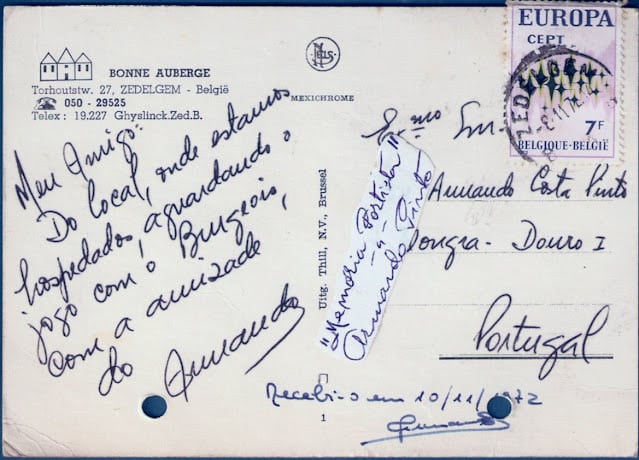 BONNE AUBERGE
Torhoutstw. 27, ZEDELGEM - België
☎ 050 - 29525
Telex : 19.227 Ghyslinck.Zed.B.
NELS
MEXICHROME
EUROPA
CEPT
7F
BELGIQUE-BELGIË
ZEDELGEM
Meu Amigo:
Do local, onde estamos
hospedados, aguardando o
jogo com o Burgeois,
com a amizade
do Armando
Uitg. Thill, N.V., Brussel
"Memória Portista"
Armando Pinto
E.mo Snr.
Armando Costa Pinto
Longra - Douro I
Portugal
Recebi-o em 10/11/1972
1